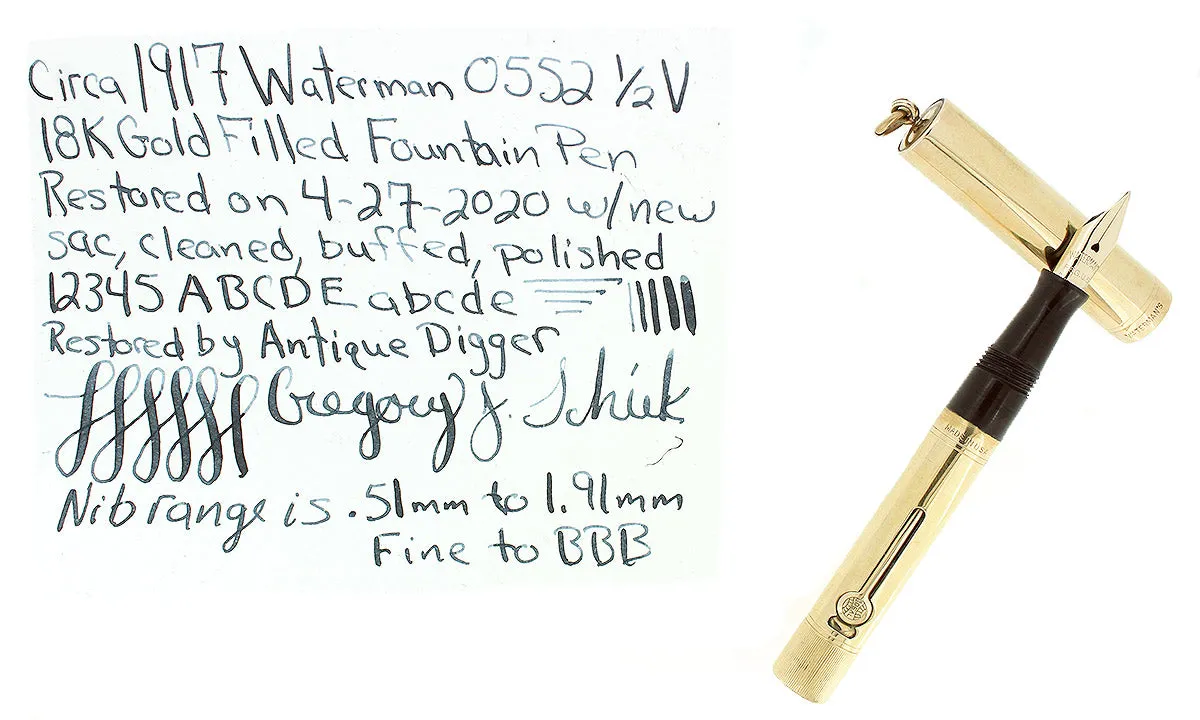 Circa 1917 Waterman 0552 1/2 V
18K Gold Filled Fountain Pen
Restored on 4-27-2020 w/new
sac, cleaned, buffed, polished
12345 ABCDE abcde
Restored by Antique Digger
Gregory J.
Nib range is .51mm to 1.91mm
Fine to BBB
WATERMAN'S
MADE IN USA